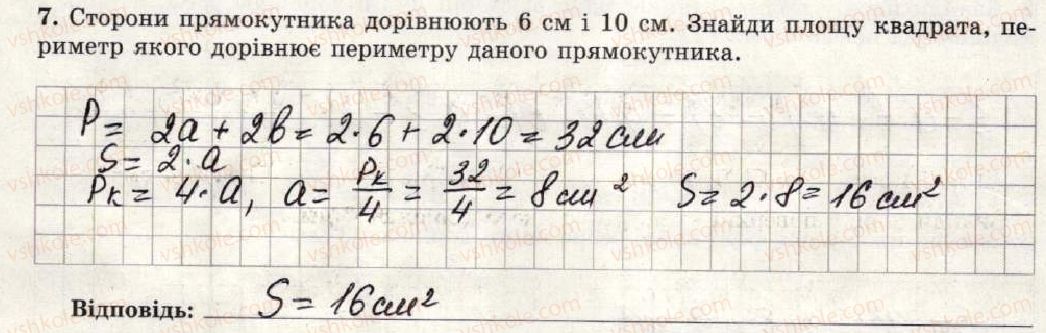 7. Сторони прямокутника дорівнюють 6 см і 10 см. Знайди площу квадрата, пе-
риметр якого дорівнює периметру даного прямокутника.
P = 2a + 2b = 2·6 + 2·10 = 32 см
S = 2·a
Pк = 4·a, a = Pк/4 = 32/4 = 8 см² S = 2·8 = 16 см²
Відповідь: S = 16 см²